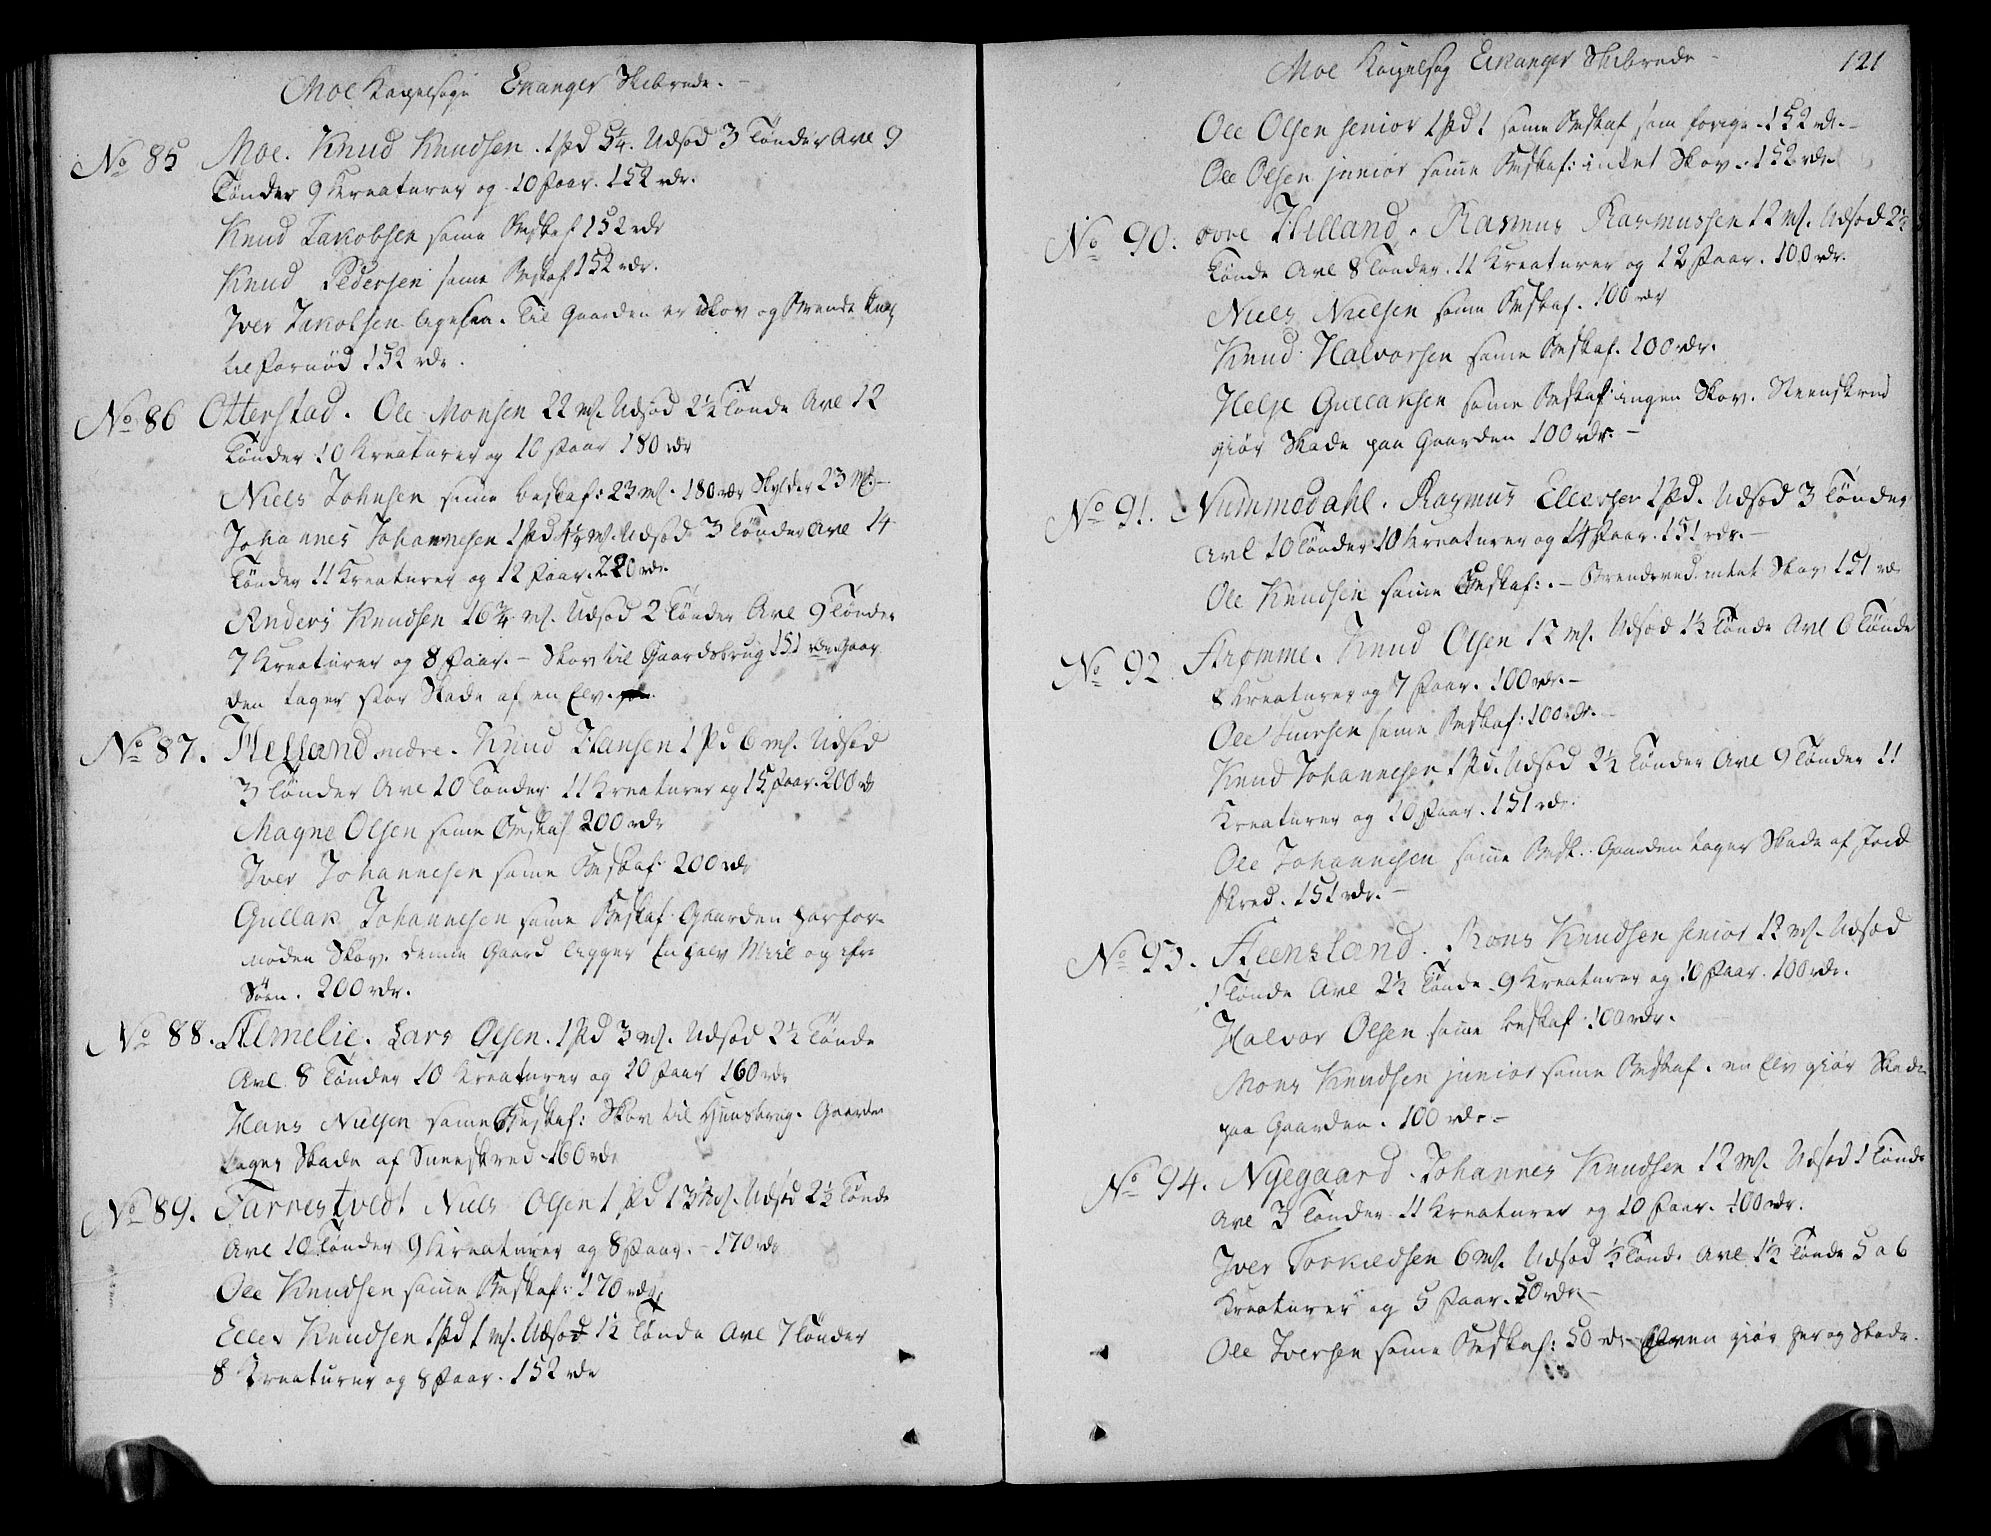 Moe Kapelsogn Ekanger Skibrede. –
No 85 Moe. Knud Knudsen. 1 pd 5¼. Udsæd 3 Tønder Avl 9
Tønder 9 Kreaturer og 10 Faar. 152 rdr.
Knud Jakobsen samme Beskaf 152 rdr
Knud Pedersen samme Beskaf 152 rdr.
Iver Jakobsen ligesaa. Til Gaarden er Skov og Brende
til fornød 152 rdr.
No 86 Otterstad. Ole Monsen 22 mk. Udsæd 2½ Tønde Avl 12
Tønder 10 Kreaturer og 10 Faar 180 rdr
Niels Johnsen samme beskaf: 23 mk. 180 rdr Skylder 23 mk. –
Johannes Johannesen 1 pd 4½ mk. Udsæd 3 Tønder Avl 14
Tønder 11 Kreaturer og 12 Faar. 220 rdr.
Anders Knudsen 16¾ mk. Udsæd 2 Tønder Avl 9 Tønder
7 Kreaturer og 8 Faar. – Skov til Gaardsbrug 151 rdr Gaar
den tager stor Skade af en Elv.
No 87. Helland nedre. Knud Hansen 1 pd 6 mk. Udsæd
3 Tønder Avl 10 Tønder 11 Kreaturer og 15 Faar. 200 rdr
Magne Olsen samme Beskaf 200 rdr
Iver Johannesen samme Beskaf: 200 rdr
Gullak Johannesen samme Beskaf Gaarden har for-
nøden Skov. denne Gaard ligger en halv Miil og fra
Søen. 200 rdr.
No 88. Almelie. Lars Olsen. 1 pd 3 mk. Udsæd 2½ Tønde
Avl 8 Tønder 10 Kreaturer og 10 Faar 160 rdr
Hans Nielsen samme Beskaf: Skov til Huusbrug. Gaarden
tager Skade af Sneeskred 160 rdr
No 89. Farrestvedt Niels Olsen 1 pd 13½ mk. Udsæd 2½ Tønde
Avl 10 Tønder 9 Kreaturer og 8 Faar. – 170 rdr
Ole Knudsen samme Beskaf: 170 rdr.
Eller Knudsen 1 pd 1 mk. Udsæd 1½ Tønde Avl 7 Tønder
8 Kreaturer og 8 Faar. 152 rdr
Moe Kapelsog Eikanger Skibrede – 121
Ole Olsen senior 1 pd 1 samme Beskaf som forige. 152 rdr. –
Ole Olsen junior samme Beskaf: intet Skov. 152 rdr
No 90. øvre Helland. Rasmus Rasmussen 12 mk. Udsæd 2½
Tønde Avl 8 Tønder. 11 Kreaturer og 12 Faar. 100 rdr.
Niels Nielsen samme Beskaf. 100 rdr
Knud Halvorsen samme Beskaf. 100 rdr.
Helje Gullaksen samme Beskaf ingen Skov. Steenskred
giør Skade paa Gaarden 100 rdr. –
No 91. Nummedahl. Rasmus Ellersen 1 pd. Udsæd 3 Tønder
Avl 10 Tønder 10 Kreaturer og 14 Faar. 151 rdr. –
Ole Knudsen samme Beskaf:. – Brendeved intet Skov 151 rd
No 92. Strømme. Knud Olsen 12 mk. Udsæd 1½ Tønde Avl 6 Tønde
8 Kreaturer og 7 Faar. 100 rdr. –
Ole Iversen samme Beskaf: 100 rdr. –
Knud Johannesen 1 pd. Udsæd 2½ Tønder Avl 9 Tønder 11
Kreaturer og 10 Faar. 151 rdr.
Ole Johannesen samme Besk. Gaarden tager Skade af Jord
skred. 151 rdr. –
No 93. Steensland. Mons Knudsen senior 12 mk. Udsæd
1 Tønde Avl 2½ Tønde. 9 Kreaturer og 10 Faar. 100 rdr.
Halvor Olsen samme beskaf. 100 rdr.
Mons Knudsen junior samme Beskaf. en Elv giør Skade
paa Gaarden. 100 rdr. –
No 94. Nyegaard. Johannes Knudsen 12 mk. Udsæd 1 Tønde
Avl 3 Tønder 11 Kreaturer og 10 Faar. 100 rdr.
Iver Torkildsen 6 mk. Udsæd ½ Tønd. Avl 1½ Tønde 5 a 6
Kreaturer og 5 Faar. 50 rdr –
Ole Iversen samme Beskaf: 50 rdr – Elven giør her og Skade.